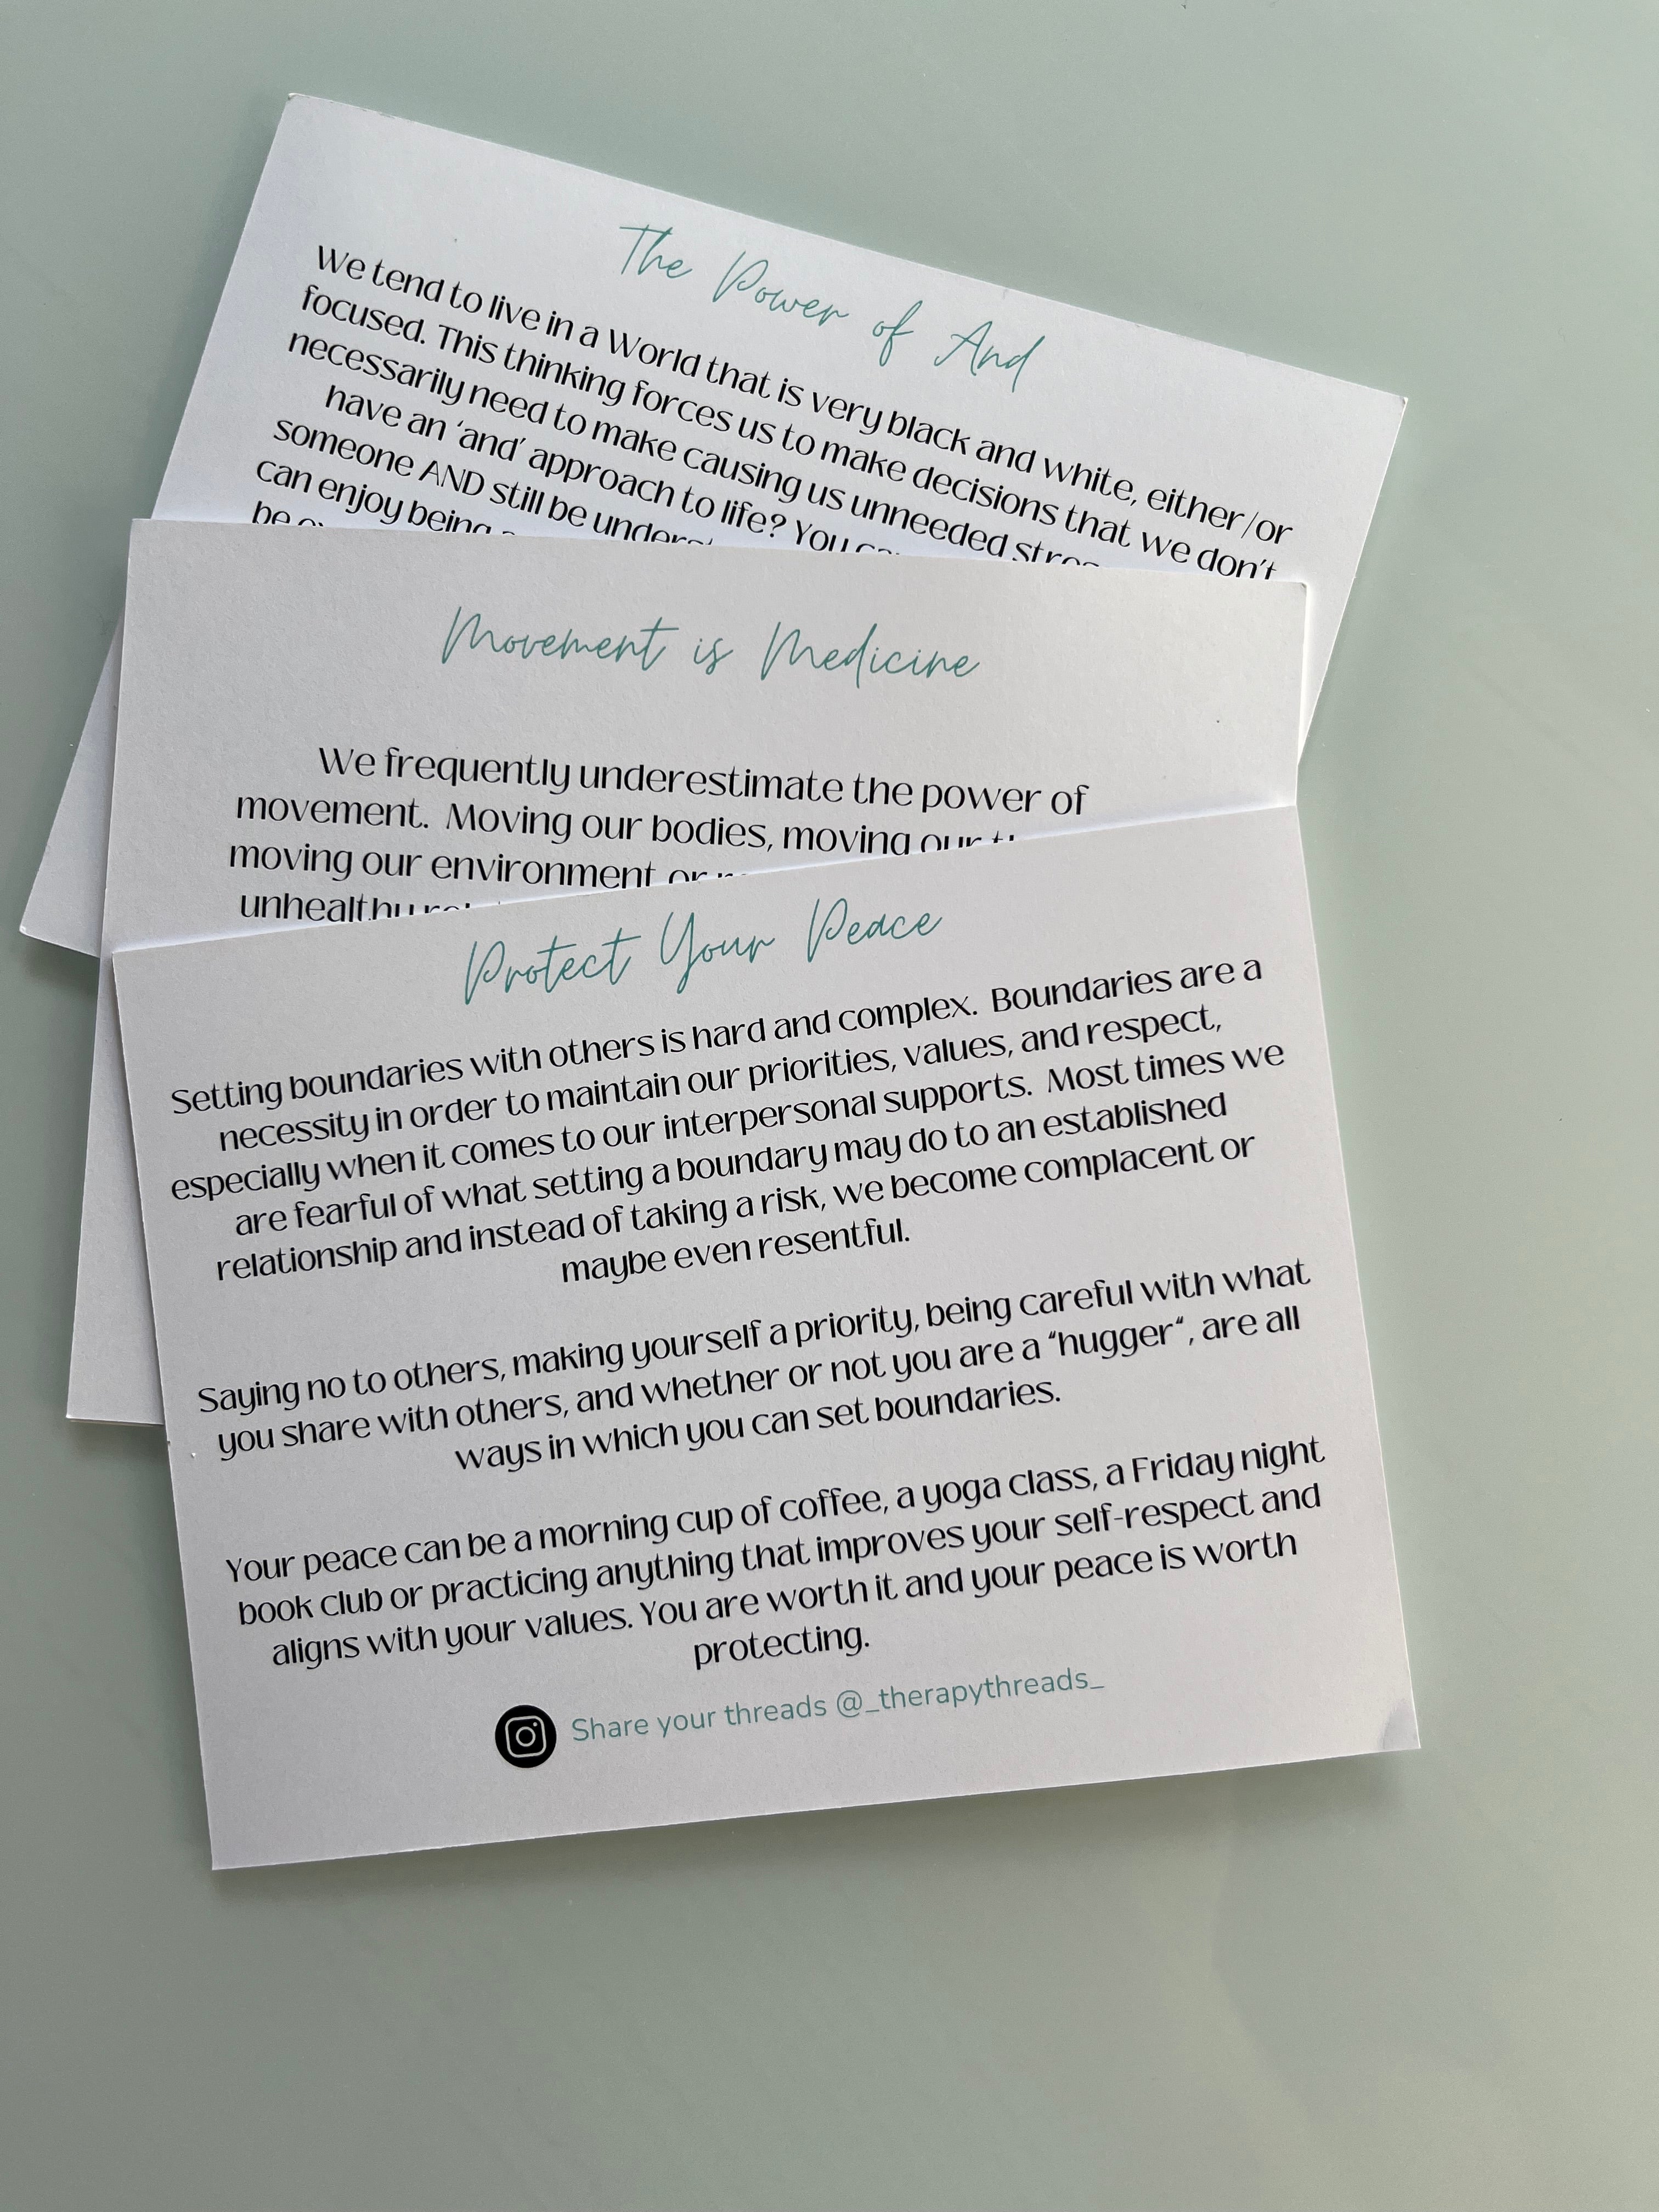 The Power of And
We tend to live in a World that is very black and white, either/or
focused. This thinking forces us to make decisions that we don't
necessarily need to make causing us unneeded
have an 'and' approach to life? You
someone AND still be
can enjoy being
be
Movement is Medicine
We frequently underestimate the power of
movement. Moving our bodies, moving our
moving our environment or
unhealthy
Protect Your Peace
Setting boundaries with others is hard and complex. Boundaries are a
necessity in order to maintain our priorities, values, and respect,
especially when it comes to our interpersonal supports. Most times we
are fearful of what setting a boundary may do to an established
relationship and instead of taking a risk, we become complacent or
maybe even resentful.
Saying no to others, making yourself a priority, being careful with what
you share with others, and whether or not you are a "hugger", are all
ways in which you can set boundaries.
Your peace can be a morning cup of coffee, a yoga class, a Friday night
book club or practicing anything that improves your self-respect and
aligns with your values. You are worth it and your peace is worth
protecting.
Share your threads @_therapythreads_